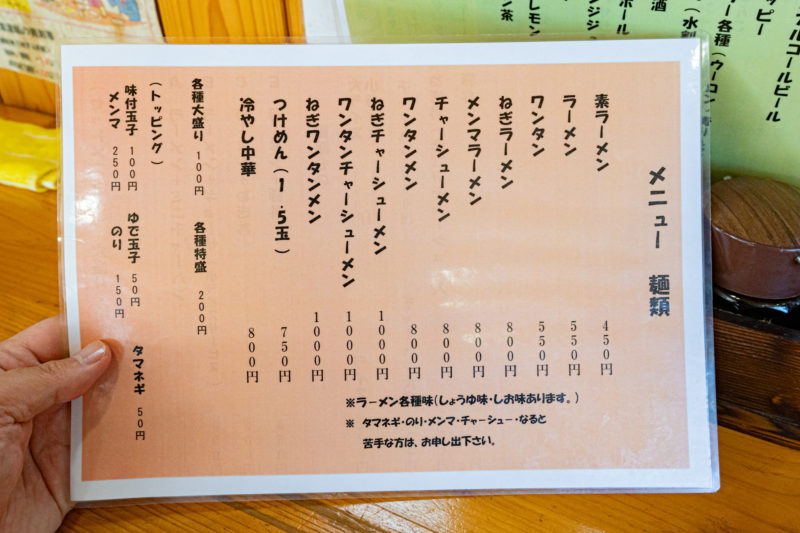 メニュー 麺類
素ラーメン 450円
ラーメン 550円
ワンタン 550円
ねぎラーメン 800円
メンマラーメン 800円
チャーシューメン 800円
ワンタンメン 800円
ねぎチャーシューメン 1000円
ワンタンチャーシューメン 1000円
ねぎワンタンメン 1000円
つけめん(1.5玉) 750円
冷やし中華 800円
※ラーメン各種味(しょうゆ味・しお味あります。)
※ タマネギ・のり・メンマ・チャーシュー・なると
苦手な方は、お申し出下さい。
各種大盛り 100円 各種特盛 200円
(トッピング)
味付玉子 100円 ゆで玉子 50円 タマネギ 50円
メンマ 250円 のり 150円
ルコールビール
ッピー
ー各種(ウーロン
(水割
酒
ボール
ンジン
レモン
ン茶